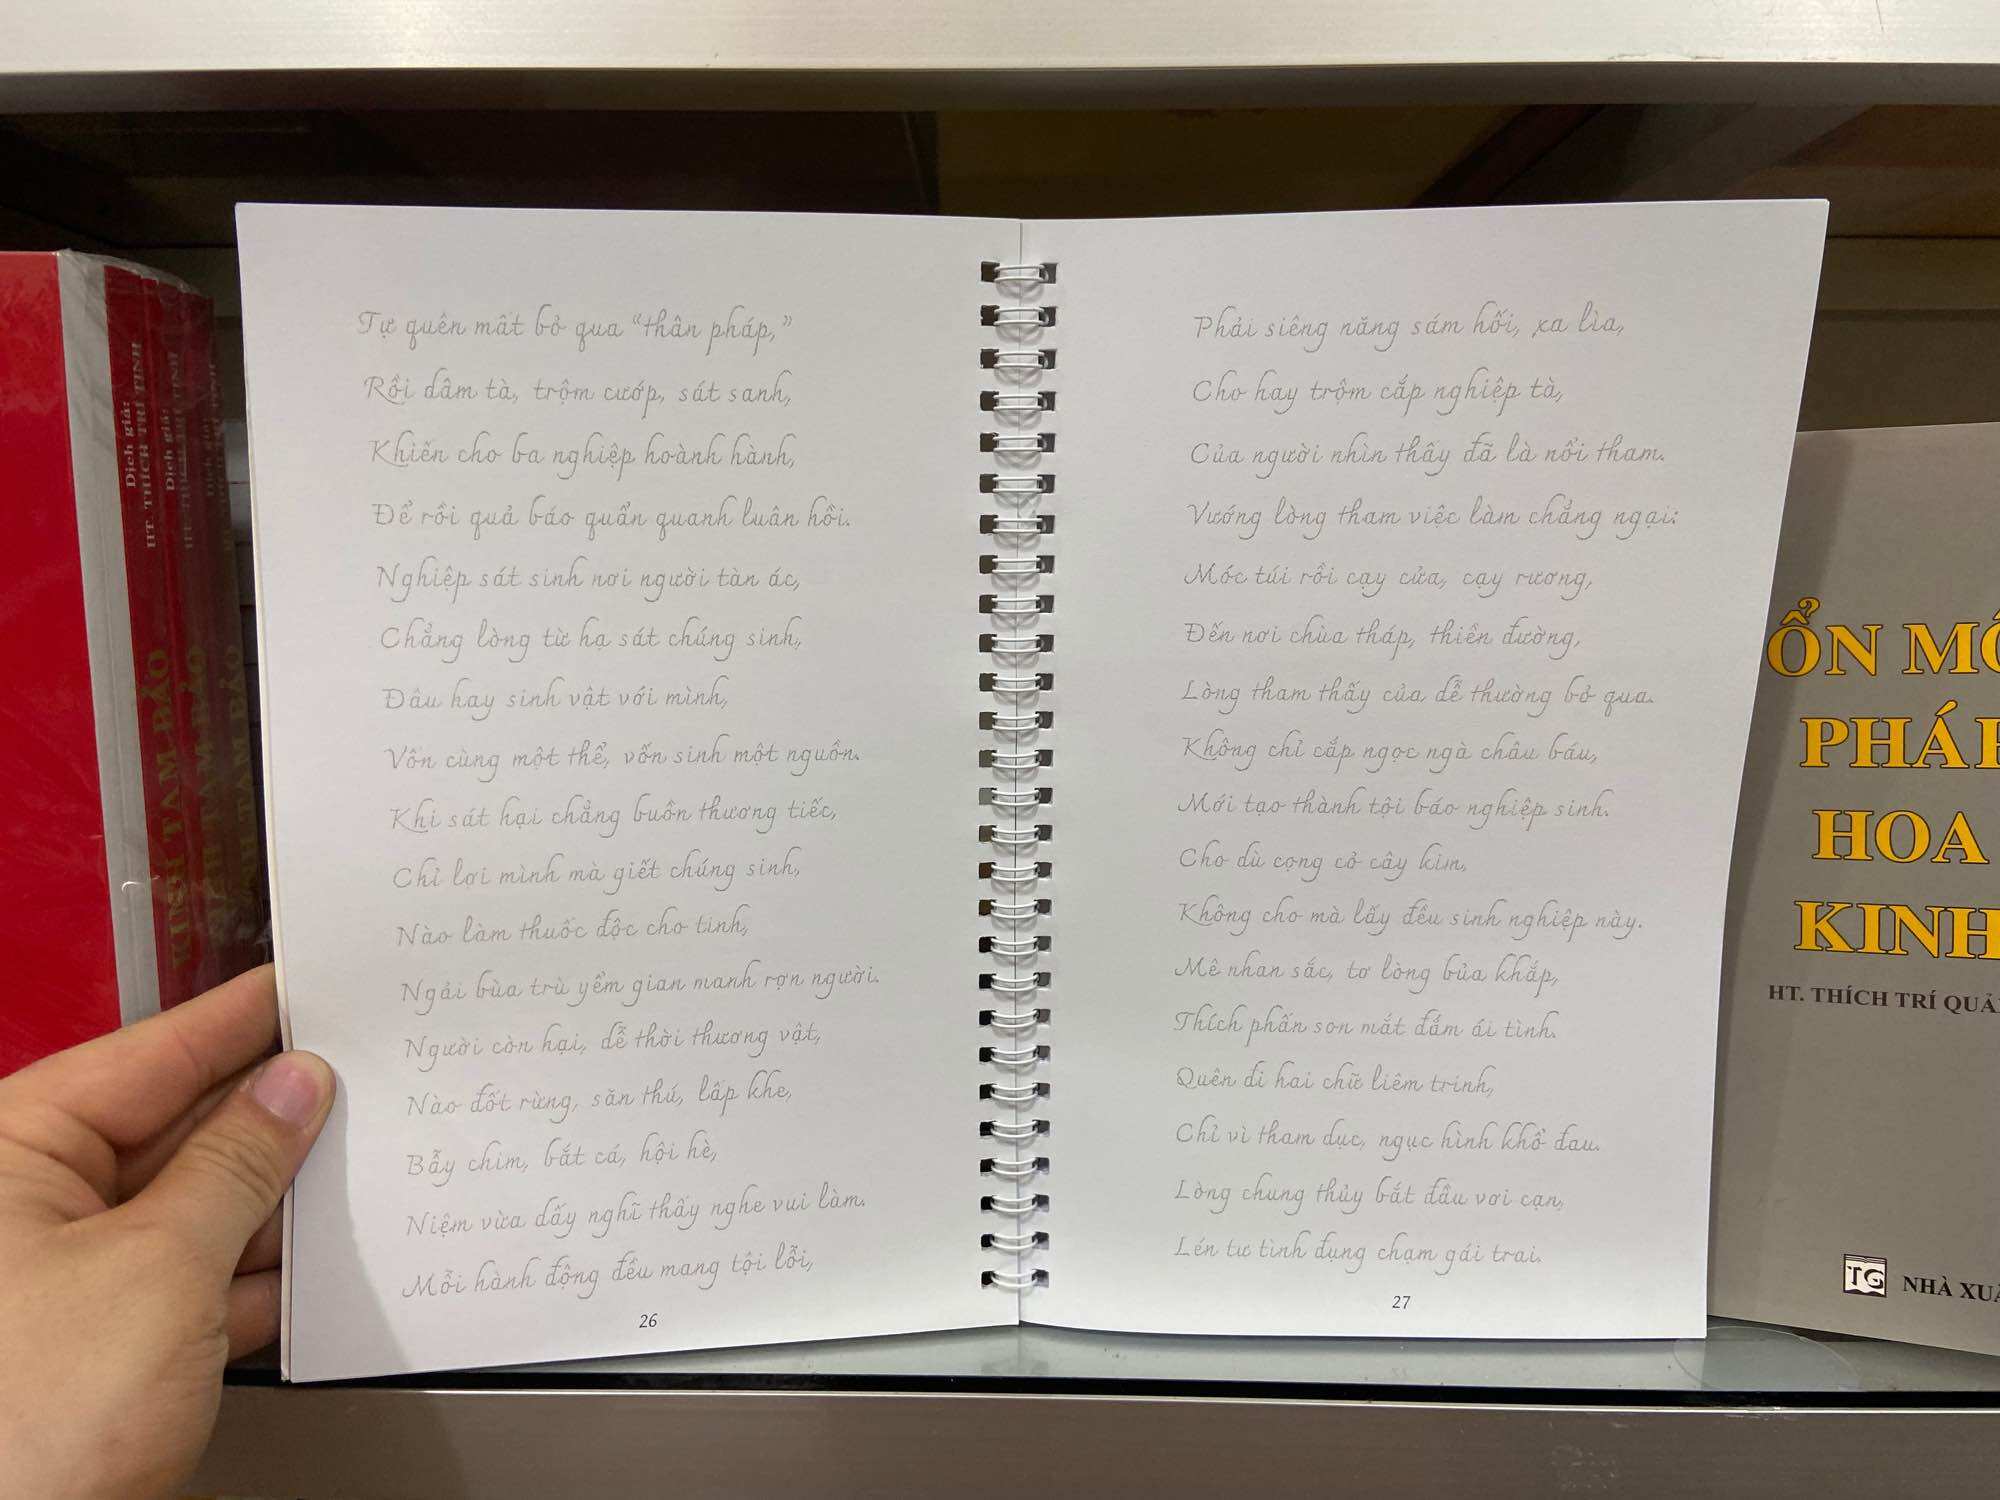 Tự quên mất bỏ qua “thân pháp,”
Rồi dâm tà, trộm cướp, sát sanh,
Khiến cho ba nghiệp hoành hành,
Để rồi quả báo quẩn quanh luân hồi.
Nghiệp sát sinh nơi người tàn ác,
Chẳng lòng từ hạ sát chúng sinh,
Đâu hay sinh vật với mình,
Vốn cùng một thể, vốn sinh một nguồn.
Khi sát hại chẳng buồn thương tiếc,
Chỉ lợi mình mà giết chúng sinh,
Nào làm thuốc độc cho tinh,
Ngải bùa trù yểm gian manh rợn người.
Người còn hại, dễ thời thương vật,
Nào đốt rừng, săn thú, lấp khe,
Bẫy chim, bắt cá, hội hè,
Niệm vừa dấy nghĩ thấy nghe vui làm.
Mỗi hành động đều mang tội lỗi,
26
Phải siêng năng sám hối, xa lìa,
Cho hay trộm cắp nghiệp tà,
Của người nhìn thấy đã là nổi tham.
Vướng lòng tham việc làm chẳng ngại:
Móc túi rồi cạy cửa, cạy rương,
Đến nơi chùa tháp, thiền đường,
Lòng tham thấy của dễ thường bỏ qua.
Không chỉ cắp ngọc ngà châu báu,
Mới tạo thành tội báo nghiệp sinh.
Cho dù cọng cỏ cây kim,
Không cho mà lấy đều sinh nghiệp này.
Mê nhan sắc, tơ lòng bủa khắp,
Thích phấn son mắt đắm ái tình.
Quên đi hai chữ liêm trinh,
Chỉ vì tham dục, ngục hình khổ đau.
Lòng chung thủy bắt đầu vơi cạn,
Lén tư tình đụng chạm gái trai.
27
Dịch giả:
HT. THÍCH TRÍ TỊNH
KINH TAM BẢO
Dịch giả:
HT. THÍCH TRÍ TỊNH
KINH TAM BẢO
KINH TAM BẢO
ỔN MÔ
PHÁP
HOA
KINH
HT. THÍCH TRÍ QUẢ
TG
NHÀ XUẤ